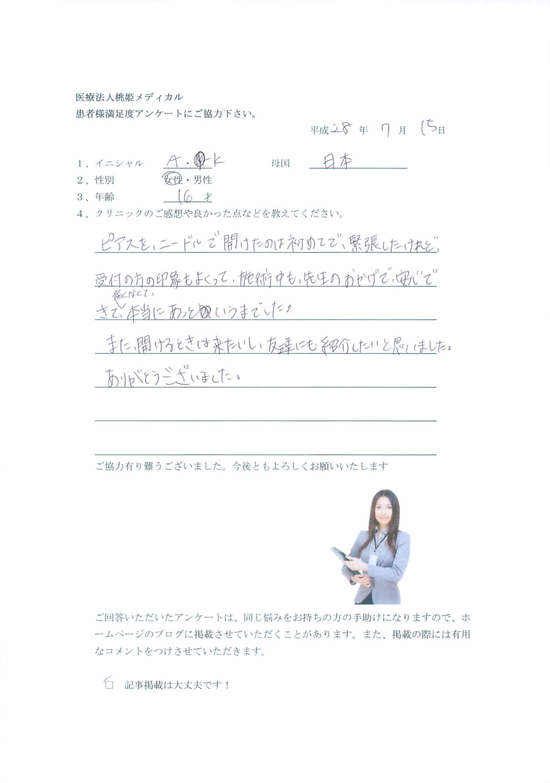 医療法人桃姫メディカル
患者様満足度アンケートにご協力下さい。
平成28年 7月 15日
1、イニシャル A・K 母国 日本
2、性別 女性・男性
3、年齢 16才
4、クリニックのご感想や良かった点などを教えてください。
ピアスを、ニードルで開けたのは初めてで、緊張したけれど、
受付の方の印象もよくって、施術中も、先生のおかげで、安心で
痛くなくて、
きて、本当にあっというまでした。
また、開けるときは来たいし、友達にも紹介したいと思いました。
ありがとうございました。
ご協力有り難うございました。今後ともよろしくお願いいたします
ご回答いただいたアンケートは、同じ悩みをお持ちの方の手助けになりますので、ホ
ームページのブログに掲載させていただくことがあります。また、掲載の際には有用
なコメントをつけさせていただきます。
□ 記事掲載は大丈夫です！